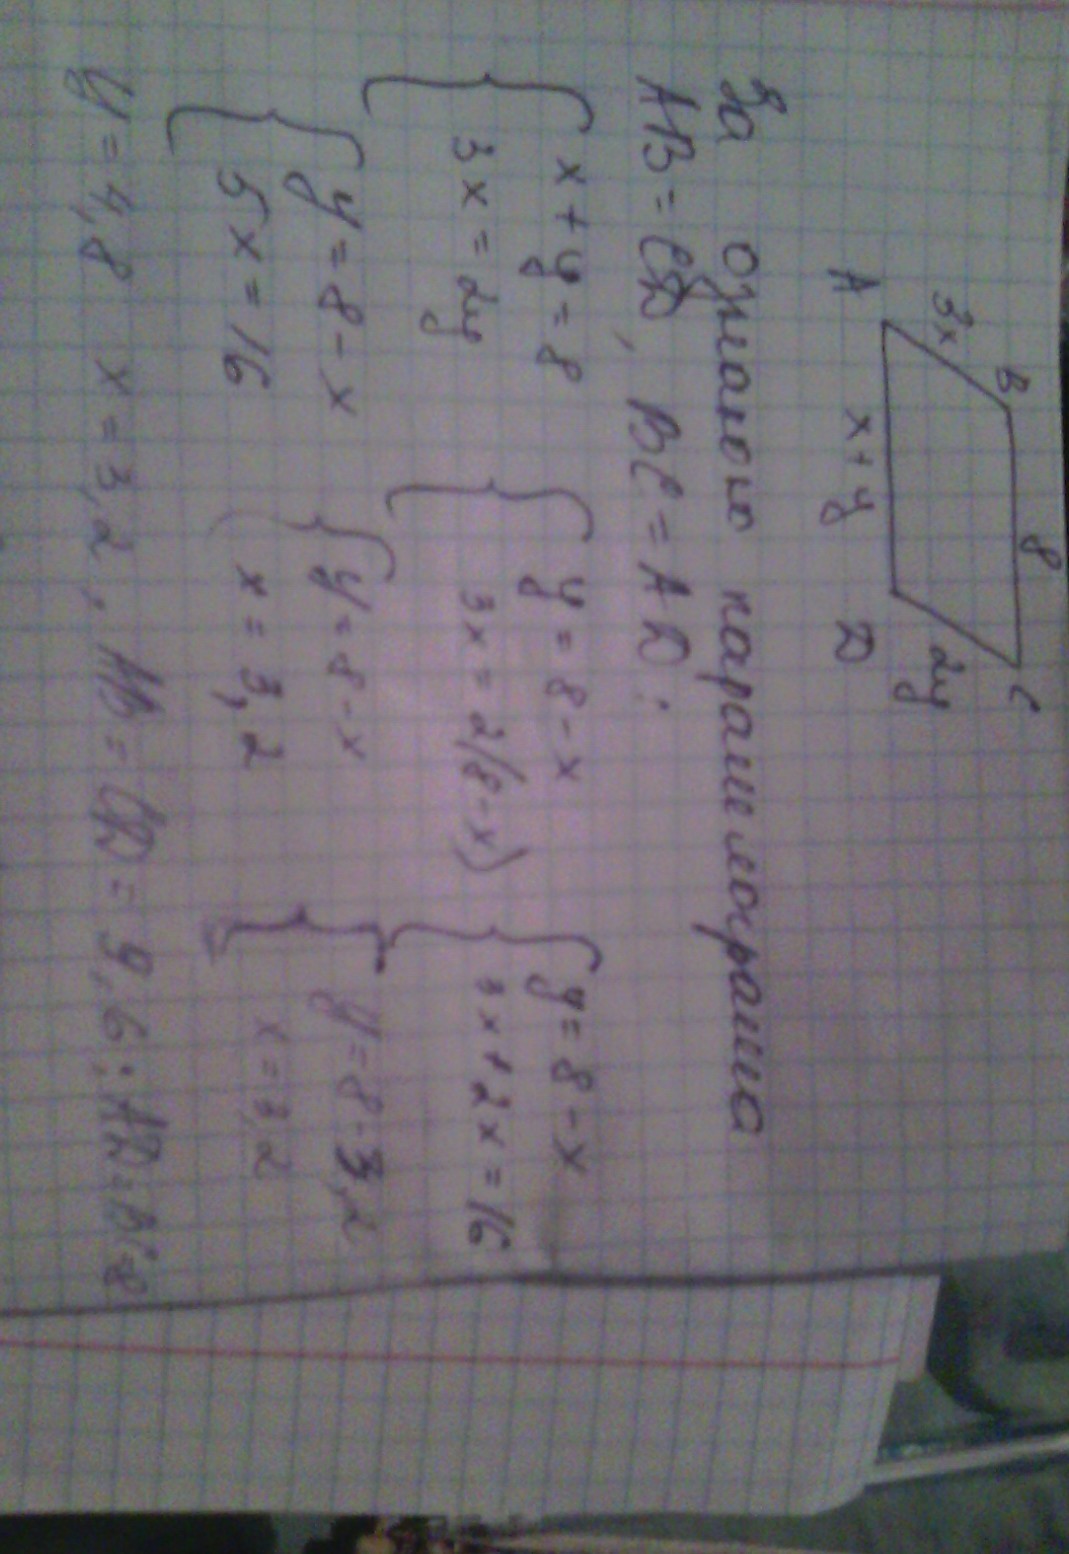 B 8 C
3x 2y
A x+y D
За ознакою паралелограма
AB = CD, BC = AD:
{ x + y = 8 { y = 8 - x { y = 8 - x
3x = 2y 3x = 2(8 - x) 3x + 2x = 16
{ y = 8 - x { y = 8 - x { y = 8 - 3,2
5x = 16 x = 3,2 x = 3,2
y = 4,8 x = 3,2. AB = CD = 9,6; AD = BC = 8